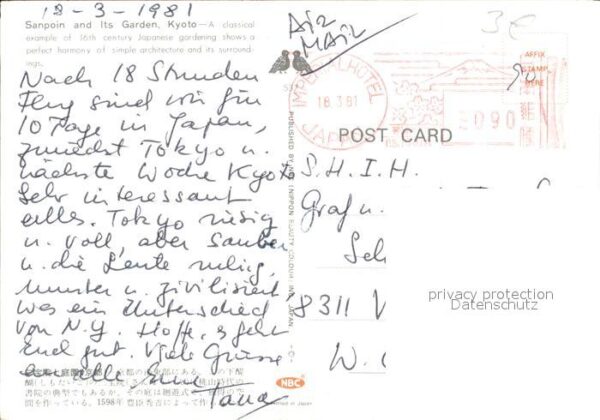 18-3-1981
Sanpoin and Its Garden, Kyoto—A classical
example of 16th century Japanese gardening shows a
perfect harmony of simple architecture and its surround-
ings.
Air
Mail
3€
AFFIX
STAMP
HERE
IMPERIAL HOTEL
18.3.81
JAPAN
0090
POST CARD
Nach 18 Stunden
Flug sind wir für
10 Tage in Japan,
zunächst Tokyo u.
nächste Woche Kyoto
Sehr interessant
alles. Tokyo riesig
u. voll, aber sauber
u. die Leute ruhig,
munter u. zivilisiert
was ein Unterschied
von N.Y. Hoffe, s geht
Euch gut. Viele Grüsse
alle
PUBLISHED BY NBC (NIPPON BEAUTY COLOUR INC.) JAPAN
S.H.I.H.
Graf u.
Sch
8311 V
W.
privacy protection
Datenschutz
NBC
Printed in Japan